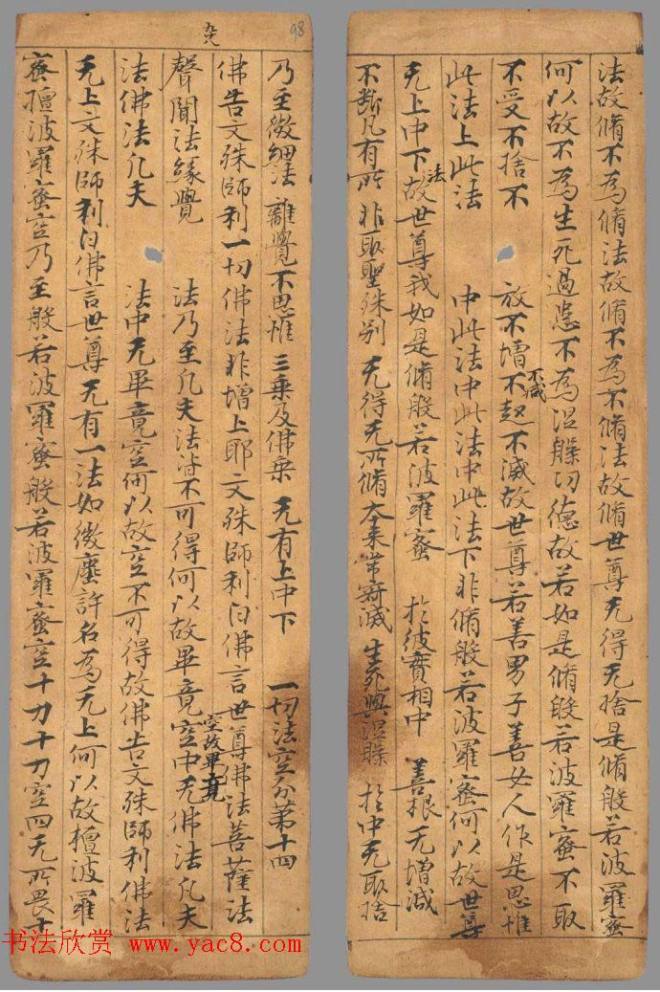 法故脩不為脩法故脩不為不脩法故脩世尊无得无捨是脩般若波羅蜜
何以故不為生死過患不為涅槃功德故若如是脩般若波羅蜜不取
不受不捨不 放不増不減不起不滅故世尊若善男子善女人作是思惟
此法上此法 中此法中此法中此法下非脩般若波羅蜜何以故世尊
无上中下法故世尊我如是脩般若波羅蜜 於彼實相中 善根无增減
不斷凡有所 非取聖殊別 无得无所脩 本来常寂滅 生死與涅槃 於中无取捨
98
乃至微細法 離覺不思惟 三乘及佛乘 无有上中下 一切法空分第十四
佛告文殊師利一切佛法非增上耶文殊師利白佛言世尊佛法菩薩法
聲聞法緣覺 法乃至凡夫法皆不可得何以故畢竟空故畢竟空中无佛法凡夫
法佛法凡夫 法中无畢竟空何以故空不可得故佛告文殊師利佛法
无上文殊師利白佛言世尊无有一法如微塵許名為无上何以故檀波羅
蜜檀波羅蜜空乃至般若波羅蜜般若波羅蜜空十力十力空四无所畏
书法欣赏 www.yac8.com